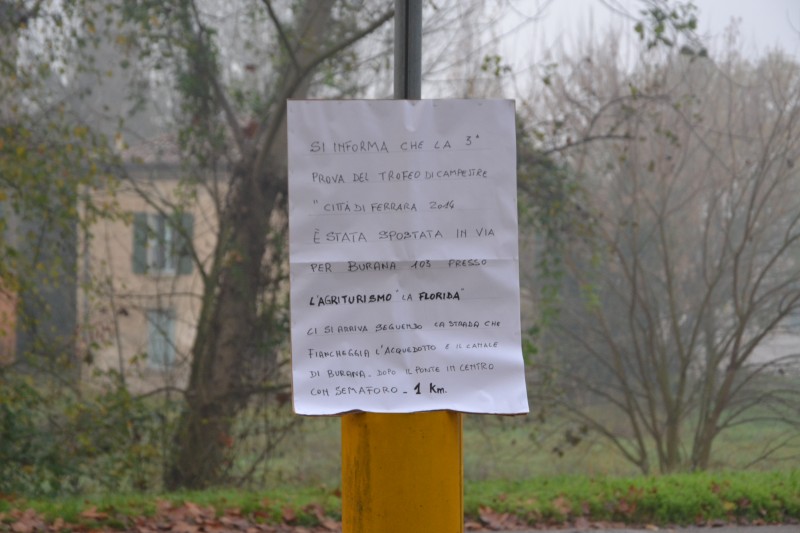 SI INFORMA CHE LA 3ª
PROVA DEL TROFEO DI CAMPESTRE
" CITTÀ DI FERRARA 2014
È STATA SPOSTATA IN VIA
PER BURANA 103 PRESSO
L'AGRITURISMO "LA FLORIDA"
CI SI ARRIVA SEGUENDO LA STRADA CHE
FIANCHEGGIA L'ACQUEDOTTO E IL CANALE
DI BURANA. DOPO IL PONTE IN CENTRO
CON SEMAFORO - 1 Km.